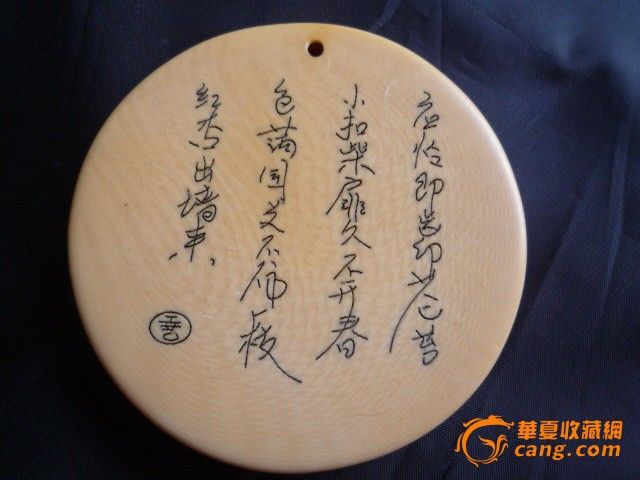 应怜即齿印苍苔
小扣柴扉久不开春
色满园关不住一枝
红杏出墙来
華夏收藏網
cang.com